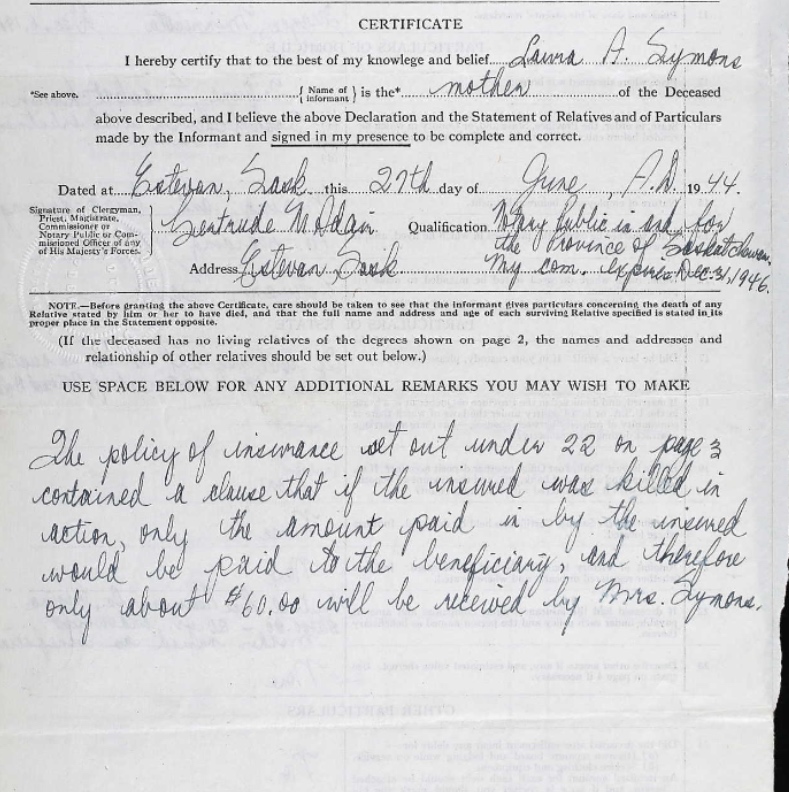 CERTIFICATE
I hereby certify that to the best of my knowlege and belief Laura A. Symons
*See above. { Name of informant } is the* mother of the Deceased
above described, and I believe the above Declaration and the Statement of Relatives and of Particulars
made by the Informant and signed in my presence to be complete and correct.
Dated at Estevan, Sask. this 27th day of June, A.D. 1944.
Signature of Clergyman,
Priest, Magistrate,
Commissioner or
Notary Public or Com-
missioned Officer of any
of His Majesty's Forces.
Gertrude McAdair
Qualification Notary Public in and for
the Province of Saskatchewan.
Address Estevan Sask
My com. expires Dec. 31, 1946.
NOTE.—Before granting the above Certificate, care should be taken to see that the informant gives particulars concerning the death of any
Relative stated by him or her to have died, and that the full name and address and age of each surviving Relative specified is stated in its
proper place in the Statement opposite.
(If the deceased has no living relatives of the degrees shown on page 2, the names and addresses and
relationship of other relatives should be set out below.)
USE SPACE BELOW FOR ANY ADDITIONAL REMARKS YOU MAY WISH TO MAKE
The policy of insurance set out under 22 on page 3
contained a clause that if the insured was killed in
action, only the amount paid in by the insured
would be paid to the beneficiary, and therefore
only about $60.00 will be received by Mrs. Symons.